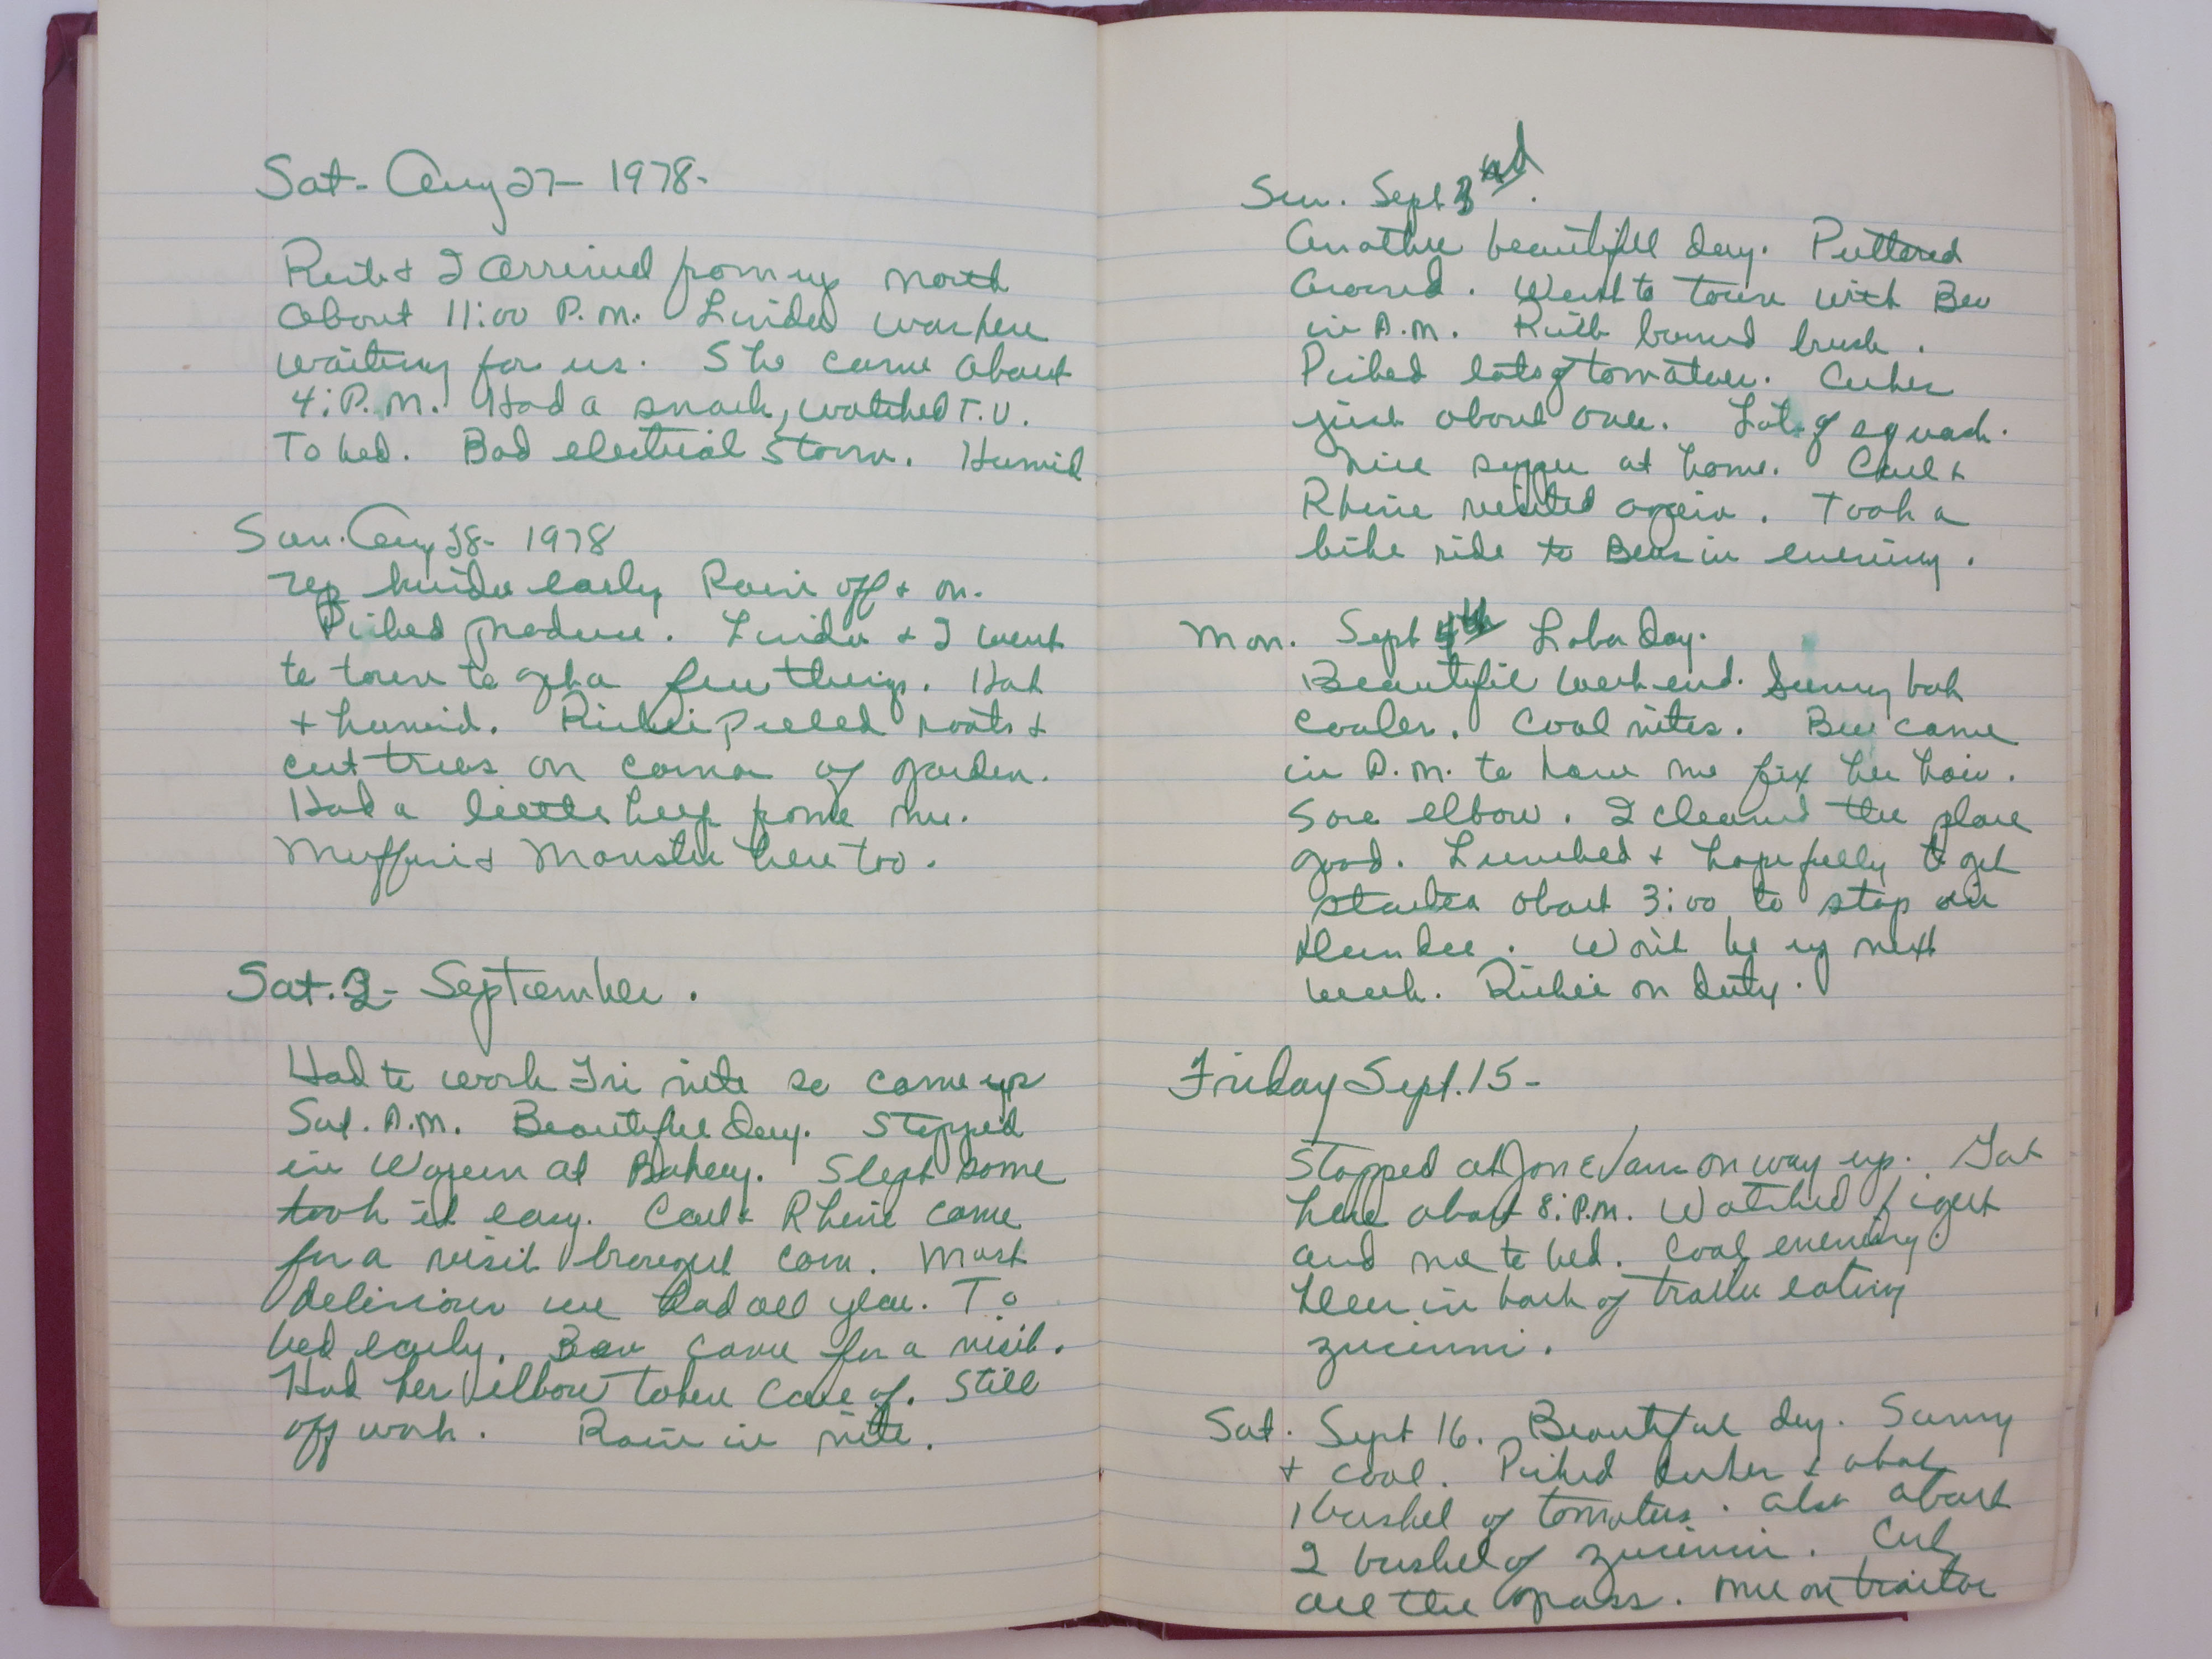 Sat - Aug 27 - 1978 -
& I arrived from up north
about 11:00 P.M. Linda was here
waiting for us. She came about
4: P.M. Had a snack, watched T.V.
To bed. Bad electrical storm. Humid
Sun. Aug 28 - 1978
Up kinda early Rain off & on.
Picked produce. Linda & I went
to town to get a few things. Hot
+ humid. Richie pulled roots +
cut trees on corner of garden.
Had a little help from me.
Muffin & Monster here too.
Sat. 2 - September.
Had to work Fri nite so came up
Sat. A.M. Beautiful day. Stopped
in at Bakery. Slept some
took it easy. Carl & Rhine came
for a visit brought corn. Most
delicious we had all year. To
bed early. Bev came for a visit.
Had her elbow taken care of. Still
off work. Rain in nite.
Sun. Sept 3rd.
Another beautiful day. Puttered
around. Went to town with Bev
in A.M. burned brush.
Picked lots of tomatoes. Cukes
just about over. Lots of squash.
Nice supper at home. Carl +
Rhine visited again. Took a
bike ride to Bevs in evening.
Mon. Sept 4th Labor Day.
Beautiful weekend. Sunny but
cooler. Cool nites. Bev came
in A.M. to have me fix her hair.
Sore elbow. I cleaned the place
good. Lunched + hopefully to get
started about 3:00 to stop in
Dundee. Won't be up next
week. Richie on duty.
Friday Sept. 15 -
Stopped at Jon E Vans on way up. Got
here about 8: P.M. Watched fight
and me to bed. Cool evening.
Deer in back of trailer eating
zucinni.
Sat. Sept 16. Beautiful day. Sunny
+ cool. Picked cukes + about
1 bushel of tomatoes. Also about
2 bushel of zucinni. Cut
all the grass. Me on tractor